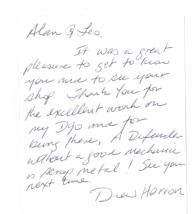 Alan & Leo,
It was a great
pleasure to get to know
you and to see your
shop. Thank You for
the excellent work on
my D90 and for
being there, A Defender
without a good mechanic
is scrap metal! See you
next time.
Drew